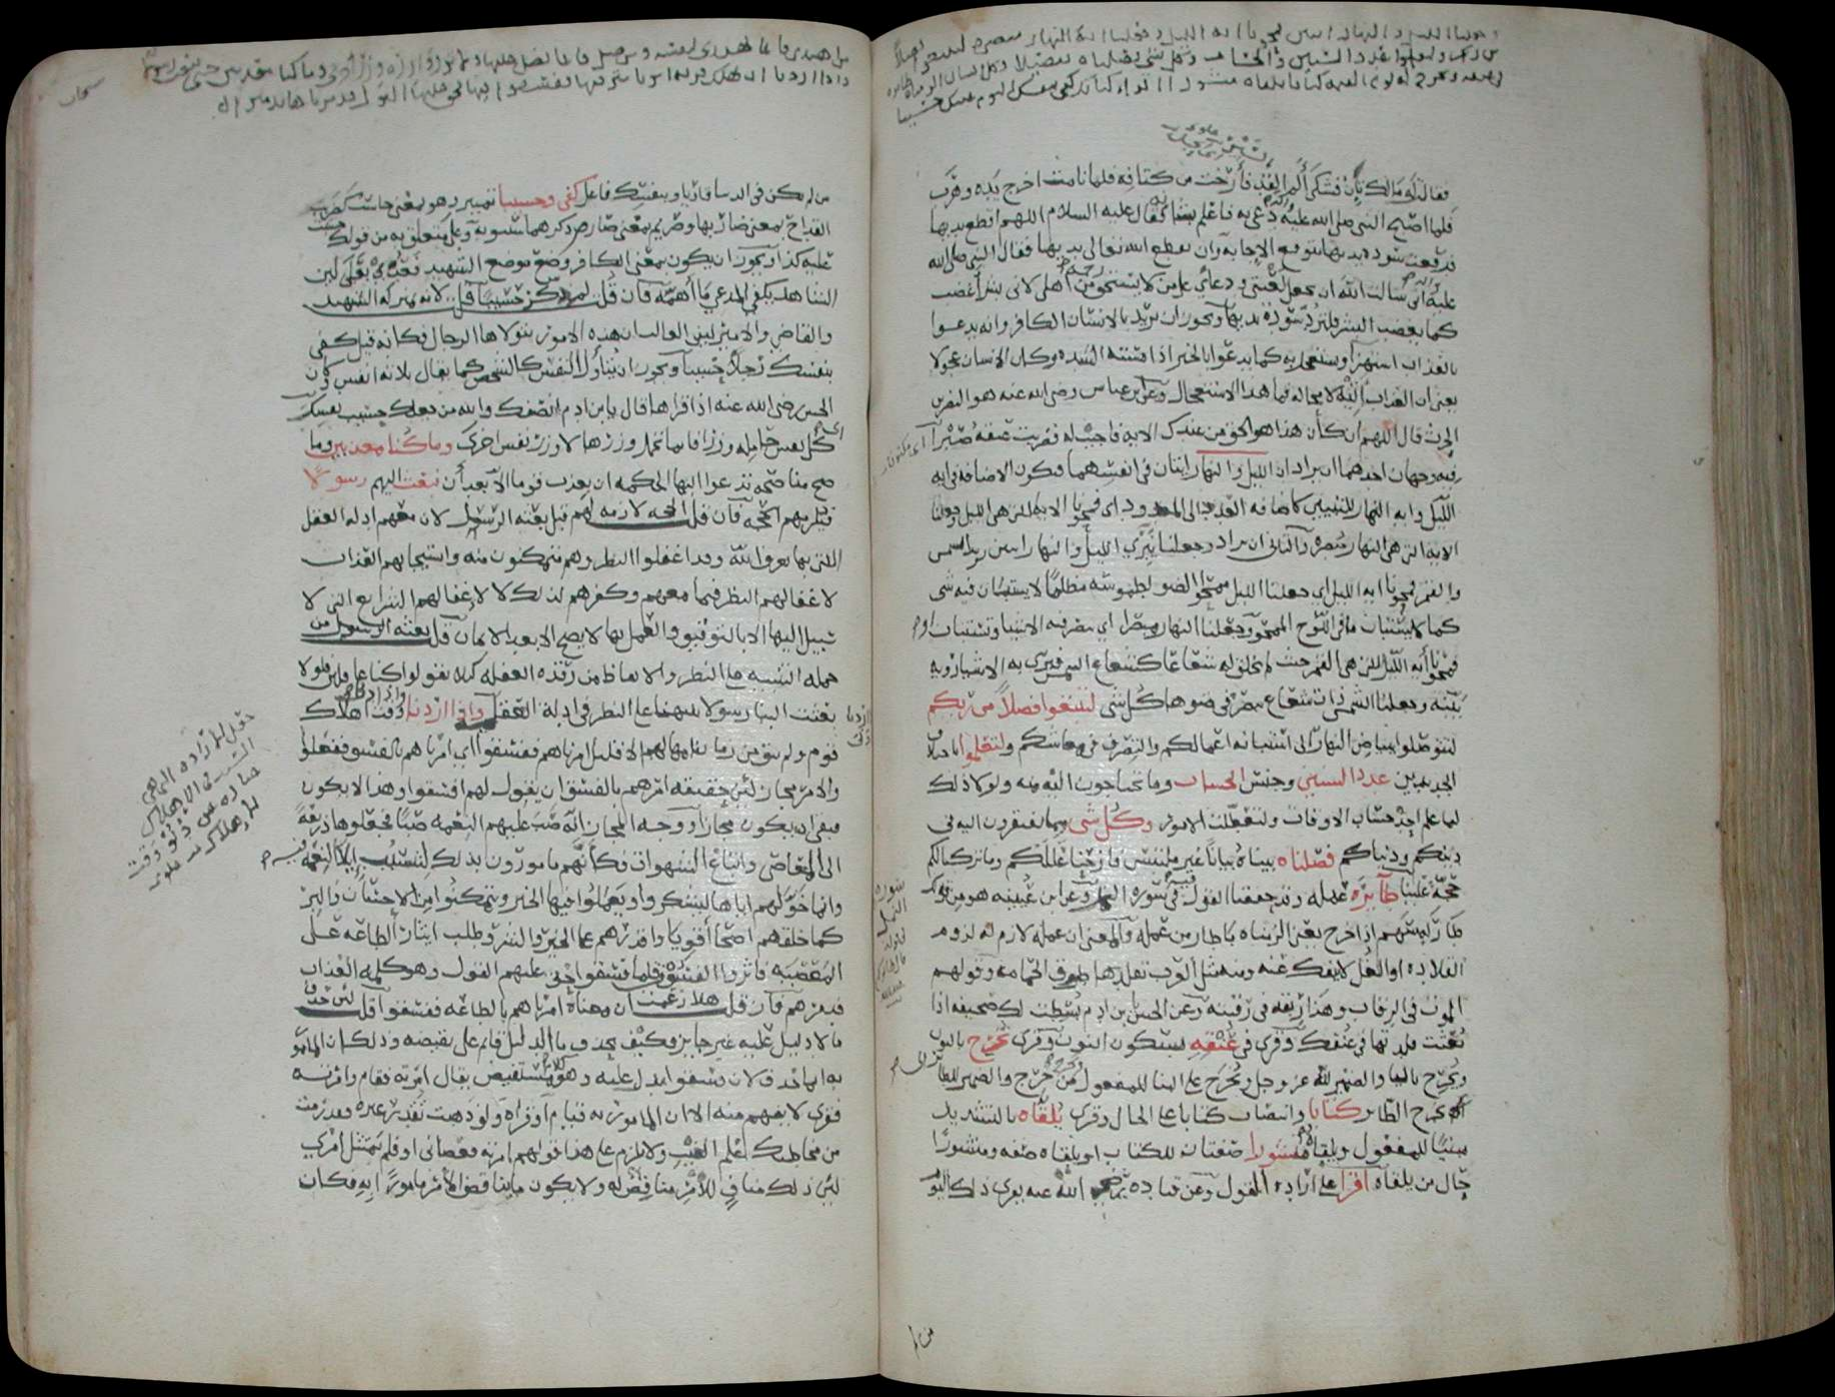 وجعلنا الليل والنهار ايتين فمحونا اية الليل وجعلنا اية النهار مبصرة لتبتغوا فضلا
من ربكم ولتعلموا عدد السنين والحساب وكل شي فصلناه تفصيلا وكل انسان الزمناه طائره
في عنقه ونخرج له يوم القيمة كتابا يلقاه منشورا اقرا كتابك كفى بنفسك اليوم عليك حسيبا
فقال له مالك يئن فشكى ألم القد فأرخت من كتافه فلما نامت اخرج يده وهرب
فلما اصبح النبي صلى الله عليه دعي به فاعلم بشأنه فقال عليه السلام اللهم اقطع يديها
فرفعت سودة يديها تتوقع الاجابة وان يقطع الله تعالى يديها فقال النبي صلى الله
عليه اني سالت الله ان يجعل لعنتي ودعائي على من لا يستحق من اهلي رحمة لاني بشر أغضب
كما يغضب البشر فلترد سودة يديها ويجوز ان يريد بالانسان الكافر وانه يدعوا
بالعذاب استهزآ ويستعجل به كما يدعوا بالخير اذا مسته الشدة وكان الانسان عجولا
يعني ان العذاب اتيه لا محالة فما هذا الاستعجال وعن ابن عباس رضي الله عنه هو النضر بن
الحرث قال اللهم ان كان هذا هو الحق من عندك الاية فاجيب له فضربت عنقه صبرا
فيه وجهان احدهما ان يراد ان الليل والنهار ايتان في انفسهما فتكون الاضافة في اية
الليل واية النهار للتبيين كاضافة العدد الى المعدود اي فمحونا الاية التي هي الليل وجعلنا
الاية التي هي النهار مبصرة والثاني ان يراد وجعلنا نيري الليل والنهار ايتين يريد الشمس
والقمر فمحونا اية الليل اي جعلنا الليل ممحو الضوء مطموسه مظلما لا يستبان فيه شي
كما لا يستبان ما في اللوح الممحو وجعلنا النهار مبصرا اي تبصر فيه الاشيا وتستبان او
فمحونا اية الليل التي هي القمر حيث لم يخلق له شعاعا كشعاع الشمس فترى به الاشيا رؤية
بينة وجعلنا الشمس ذات شعاع يبصر في ضوءها كل شي لتبتغوا فضلا من ربكم
لتتوصلوا ببياض النهار الى استبانة اعمالكم والتصرف في معاشكم ولتعلموا باختلاف
الجديدين عدد السنين وجنس الحساب وما تحتاجون اليه منه ولولا ذلك
لما علم احد حسبان الاوقات ولتعطلت الامور وكل شي مما تفتقرون اليه في
دينكم ودنياكم فصلناه بيناه بيانا غير ملتبس فازحنا عللكم وما تركنا لكم
حجة علينا طائره عمله وقد حققنا القول فيه في سورة النمل وعن ابن عيينة هو من قولك
طار له سهم اذا خرج يعني الزمناه ما طار من عمله والمعنى ان عمله لازم له لزوم
القلادة او الغل لا يفك عنه ومنه مثل العرب تقلدها طوق الحمامة وقولهم
الموت في الرقاب وهذا ربقة في رقبته وعن الحسن يا ابن ادم بسطت لك صحيفة اذا
بعثت قلدتها في عنقك وقرى في عنقه بسكون النون وقرى نخرج بالنون
ويخرج باليا والضمير لله عز وجل ويخرج على البنا للمفعول ويخرج من خرج والضمير للطائر
اي يخرج الطائر كتابا وانتصاب كتابا على الحال وقرى يلقاه بالتشديد
مبنيا للمفعول ويلقاه منشورا صفتان للكتاب او يلقاه صفة ومنشورا
حال من يلقاه اقرا على ارادة القول وعن قتادة رضي الله عنه يقرى ذلك اليوم
من اهتدى فانما يهتدي لنفسه ومن ضل فانما يضل عليها ولا تزر وازرة وزر اخرى وما كنا معذبين حتى نبعث رسولا
واذا اردنا ان نهلك قرية امرنا مترفيها ففسقوا فيها فحق عليها القول فدمرناها تدميرا
من لم يكن في الدنيا قاريا وبنفسك فاعل كفى وحسيبا تمييز وهو بمعنى حاسب كضريب
القداح بمعنى ضاربها وصريم بمعنى صارم ذكرهما سيبويه وعلى متعلق به من قولك حسب
عليه كذا ويجوز ان يكون بمعنى الكافي وضع موضع الشهيد فعدي بعلى لان
الشاهد يكفي المدعي ما أهمه فان قلت لم ذكر حسيبا قلت لانه بمنزلة الشهيد
والقاضي والامير لان الغالب ان هذه الامور يتولاها الرجال فكانه قيل كفى
بنفسك رجلا حسيبا ويجوز ان يتأول النفس بالشخص كما يقال ثلاثة انفس وكان
الحسن رضي الله عنه اذا قراها قال يا ابن ادم انصفك والله من جعلك حسيب نفسك
اي كل نفس حاملة وزرا فانما تحمل وزرها لا وزر نفس اخرى وما كنا معذبين وما
صح منا صحة تدعوا اليها الحكمة ان يعذب قوما الا بعد أن نبعث اليهم رسولا
فنلزمهم الحجة فان قلت الحجة لازمة لهم قبل بعثة الرسول لان معهم ادلة العقل
التي بها يعرف الله وقد اغفلوا النظر وهم متمكنون منه واستيجابهم العذاب
لاغفالهم النظر فيما معهم وكفرهم لذلك لا لاغفالهم الشرائع التي لا
سبيل اليها الا بالتوقيف والعمل بها لا يصح الا بعد الايمان قلت بعثة الرسول من
جملة التنبيه على النظر والايقاظ من رقدة الغفلة كيلا يقولوا كنا غافلين فلولا
بعثت الينا رسولا ينبهنا على النظر في ادلة العقل واذا اردنا وقت اهلاك
قوم ولم يبق من زمان امهالهم الا قليل امرناهم ففسقوا اي امرناهم بالفسق ففعلوا
والامر مجاز لان حقيقة امرهم بالفسق ان يقول لهم افسقوا وهذا لا يكون
فبقي ان يكون مجازا ووجه المجاز انه صب عليهم النعمة صبا فجعلوها ذريعة
الى المعاصي واتباع الشهوات فكأنهم مامورون بذلك لتسبب إيلاء النعمة فيه
وانما خولهم اياها ليشكروا ويعملوا فيها الخير ويتمكنوا من الاحسان والبر
كما خلقهم اصحا أقويا واقدرهم على الخير والشر وطلب ايثار الطاعة على
المعصية فاثروا الفسوق فلما فسقوا حق عليهم القول وهو كلمة العذاب
فدمرهم فان قلت هلا زعمت ان معناه امرناهم بالطاعة ففسقوا قلت لان حذف
ما لا دليل عليه غير جائز فكيف يحذف ما الدليل قائم على نقيضه وذلك ان المامور
به انما حذف لان ففسقوا يدل عليه وهو كلام مستفيض يقال امرته فقام وامرته
فقرى لا يفهم منه الا ان المامور به قيام او قراة ولو ذهبت تقدر غيره فقد رمت
من مخاطبك علم الغيب ولا يلزم على هذا قولهم امرته فعصاني او فلم يمتثل امري
لان ذلك مناف للامر مناقض له ولا يكون ما يناقض الامر مامورا به فكان